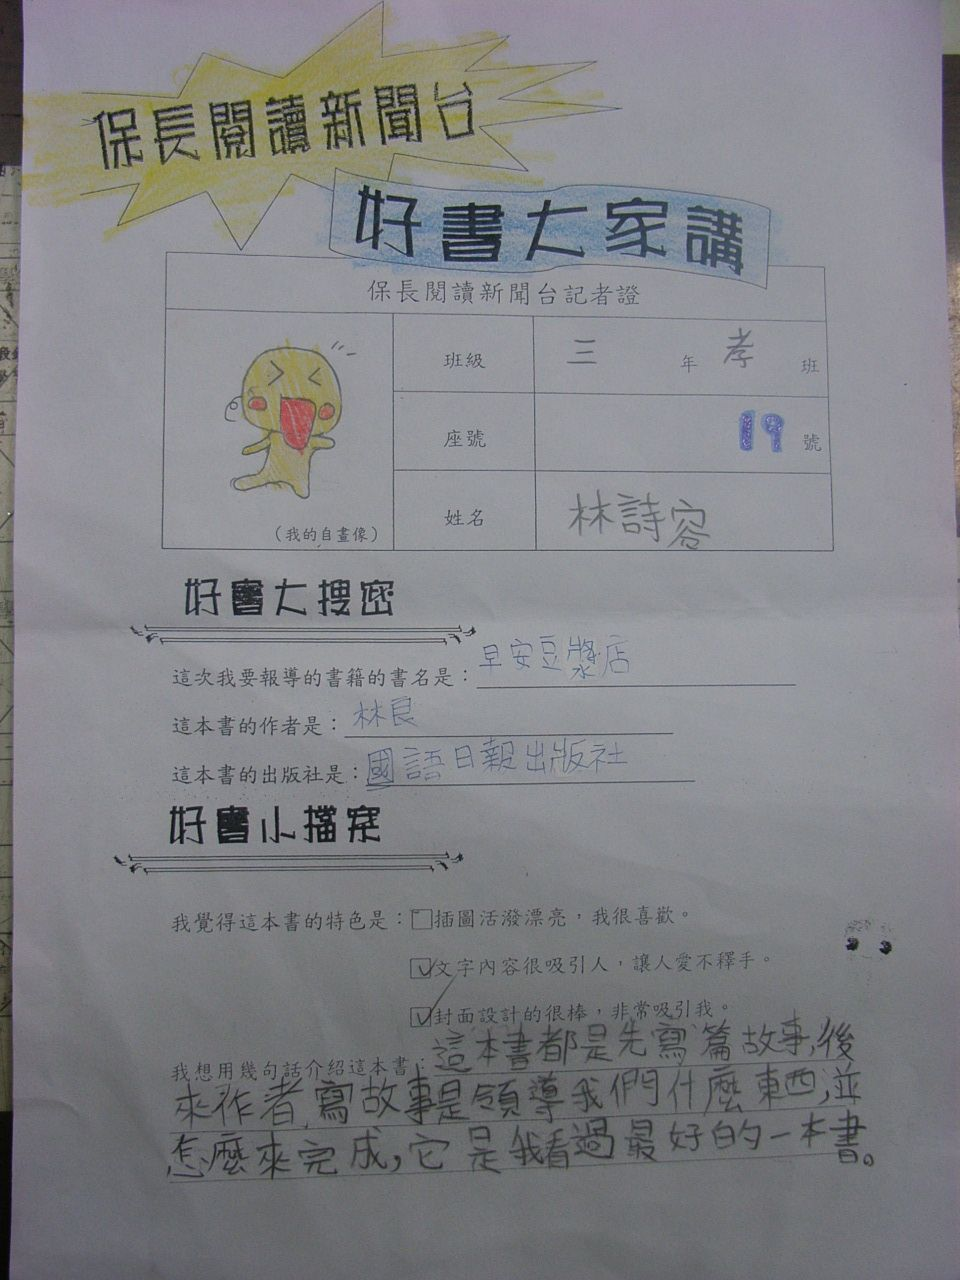 保長閱讀新聞台
好書大家講
保長閱讀新聞台記者證
班級 三 年 孝 班
座號 19 號
姓名 林詩容
(我的自畫像)
好書大搜密
這次我要報導的書籍的書名是：早安豆漿店
這本書的作者是：林良
這本書的出版社是：國語日報出版社
好書小擋案
我覺得這本書的特色是：□插圖活潑漂亮，我很喜歡。
☑文字內容很吸引人，讓人愛不釋手。
☑封面設計的很棒，非常吸引我。
我想用幾句話介紹這本書：這本書都是先寫篇故事，後
來作者，寫故事是領導我們什麼東西，並
怎麼來完成，它是我看過最好的一本書。